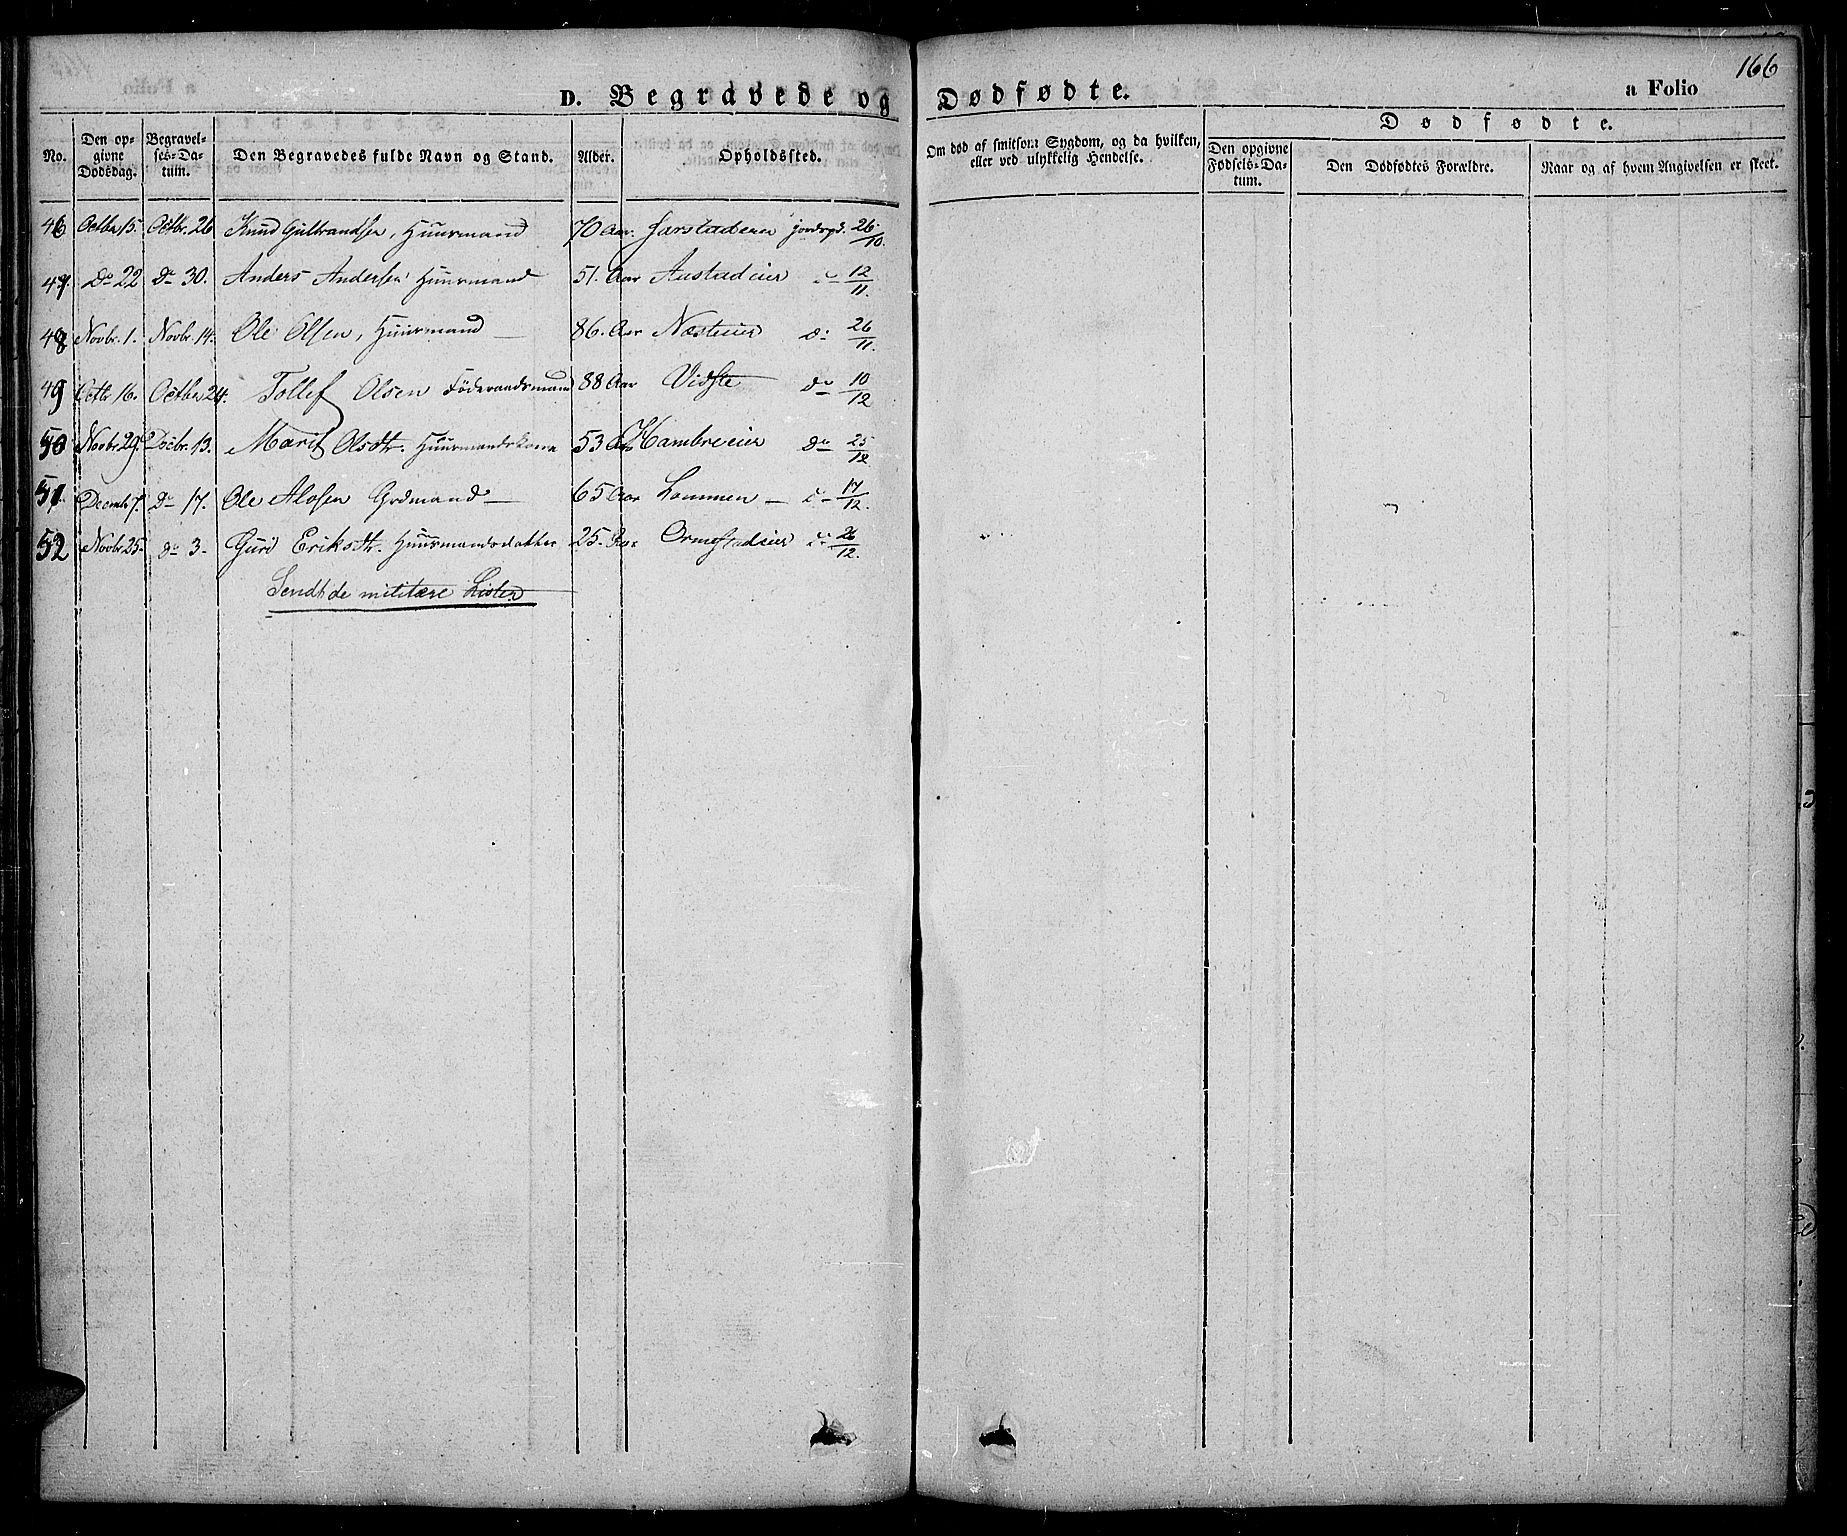 166
D. Begravede og Dødfødte. a Folio
No. Den opgivne Dødsdag. Begravelses-Datum. Den Begravedes fulde Navn og Stand. Alder. Opholdssted. Om død af smitsom Sygdom, og da hvilken, eller ved ulykkelig Hendelse. Dødfødte.
Den opgivne Fødsels-Datum. Den Dødfødtes Forældre. Naar og af hvem Angivelsen er skeet.
46 Octbr 15. Octbr. 26 Knud Gulbrandsen, Huusmand 70 Aar. Jarstadeier jordops. 26/10.
47. Do 22 Do 30. Anders Andersen Huusmand 51. Aar Austadeier do 12/11.
48 Novbr. 1. Novbr. 14. Ole Olsen, Huusmand 86. Aar Næsteier do 26/11.
49 Octbr 16. Octbr 24. Tollef Olsen Föderaadsmand 88 Aar Vidste do 10/12
50 Novbr 29. Decbr. 13. Marit Olsdtr. Huusmandskone 53 Aar Hambreeier do 25/12
51. Decembr 7. Do 17. Ole Alofsen Godmand 65 Aar Lommen do 17/12.
52 Novbr 25. do 3. Guri Eriksdtr. Huusmandsdatter 25. Aar Ormestadeier do 26/12.
Sendt de militære Lister